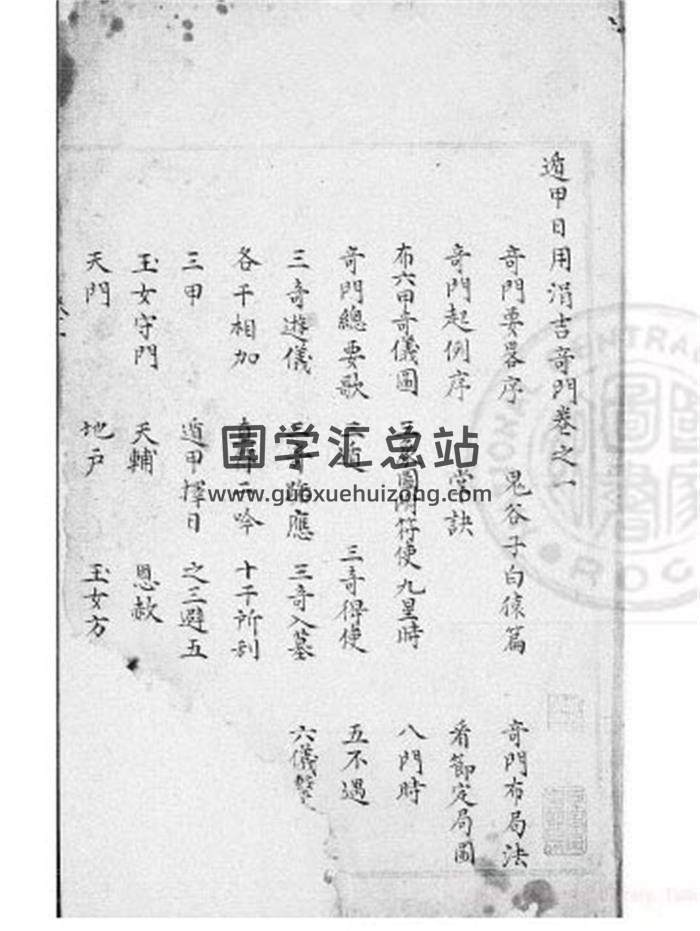 遁甲日用涓吉奇門卷之一
奇門要畧序 鬼谷子白猿篇 奇門布局法
奇門起例序 掌訣 看節定局圖
布六甲奇儀圖 符使九星時 八門時
奇門總要歌 三遁 三奇得使 五不遇
三奇遊儀 三奇 應 三奇入墓 六儀擊
各干相加 吟 十干所剋
三甲 遁甲擇日 之三避五
玉女守門 天輔 恩赦
天門 地戶 玉女方
国学汇总站
www.guoxuehuizong.com